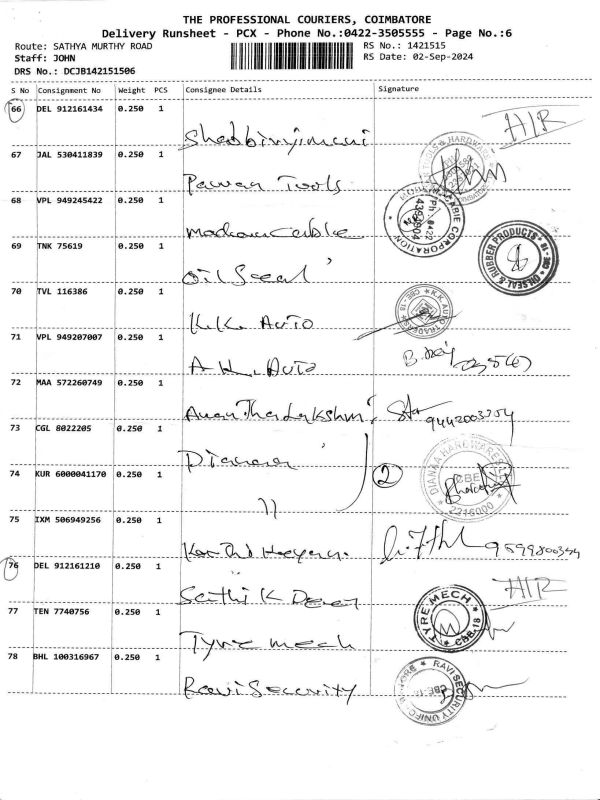 THE PROFESSIONAL COURIERS, COIMBATORE
Delivery Runsheet - PCX - Phone No.:0422-3505555 - Page No.:6
Route: SATHYA MURTHY ROAD
RS No.: 1421515
Staff: JOHN
RS Date: 02-Sep-2024
DRS No.: DCJB142151506
S No Consignment No Weight PCS Consignee Details Signature
66 DEL 912161434 0.250 1
H/R
67 JAL 530411839 0.250 1
Pawan Tools
TOOLS & HARDWARE
68 VPL 949245422 0.250 1
CORPORATION
69 TNK 75619 0.250 1
Oil Seal
OILSEAL & RUBBER PRODUCTS
70 TVL 116386 0.250 1
K.K. Auto
K.K. AUTO TRADERS CBE-18
71 VPL 949207007 0.250 1
A.K. Auto
72 MAA 572260749 0.250 1
Anantha Lakshmi
9442003254
73 CGL 8022205 0.250 1
Dianaa
DIANAA HARDWARES CBE 2216000
74 KUR 6000041170 0.250 1
11
2
75 IXM 506949256 0.250 1
76 DEL 912161210 0.250 1
H/R
77 TEN 7740756 0.250 1
Tyre mech
TYRE MECH CBE-18
78 BHL 100316967 0.250 1
Ravi Security
RAVI SECURITY